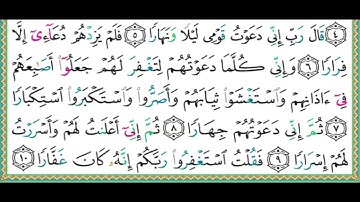 ٤ قَالَ رَبِّ إِنِّي دَعَوْتُ قَوْمِي لَيْلًا وَنَهَارًا ٥ فَلَمْ يَزِدْهُمْ دُعَآءِيٓ إِلَّا
فِرَارًا ٦ وَإِنِّي كُلَّمَا دَعَوْتُهُمْ لِتَغْفِرَ لَهُمْ جَعَلُوٓا۟ أَصَٰبِعَهُمْ
فِيٓ ءَاذَانِهِمْ وَٱسْتَغْشَوْا۟ ثِيَابَهُمْ وَأَصَرُّوا۟ وَٱسْتَكْبَرُوا۟ ٱسْتِكْبَارًا
٧ ثُمَّ إِنِّي دَعَوْتُهُمْ جِهَارًا ٨ ثُمَّ إِنِّيٓ أَعْلَنتُ لَهُمْ وَأَسْرَرْتُ
لَهُمْ إِسْرَارًا ٩ فَقُلْتُ ٱسْتَغْفِرُوا۟ رَبَّكُمْ إِنَّهُۥ كَانَ غَفَّارًا ١٠